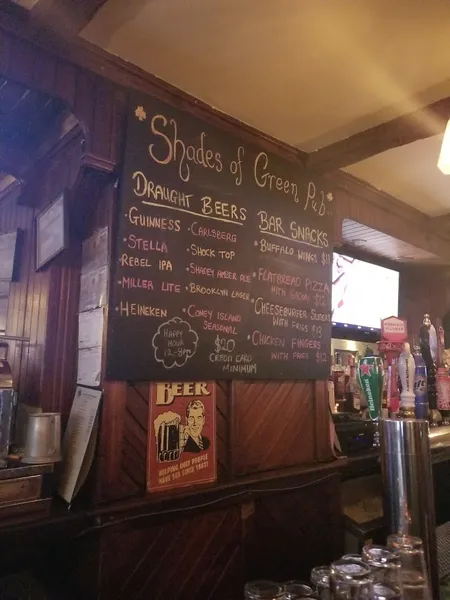 Shades of Green Pub
DRAUGHT BEERS
• GUINNESS
• STELLA
• REBEL IPA
• MILLER LITE
• HEINEKEN
• CARLSBERG
• SHOCK TOP
• BROOKLYN LAGER
• CONEY ISLAND
SEASONAL
HAPPY
HOUR
12-8PM
$20
CREDIT CARD
MINIMUM
BAR SNACKS
• BUFFALO WINGS
• FLATBREAD PIZZA
WITH BACON
• CHEESEBURGER
WITH FRIES $13
• CHICKEN FINGERS
WITH FRIES $12
BEER
HELPING UGLY PEOPLE
HAVE SEX SINCE
Heineken